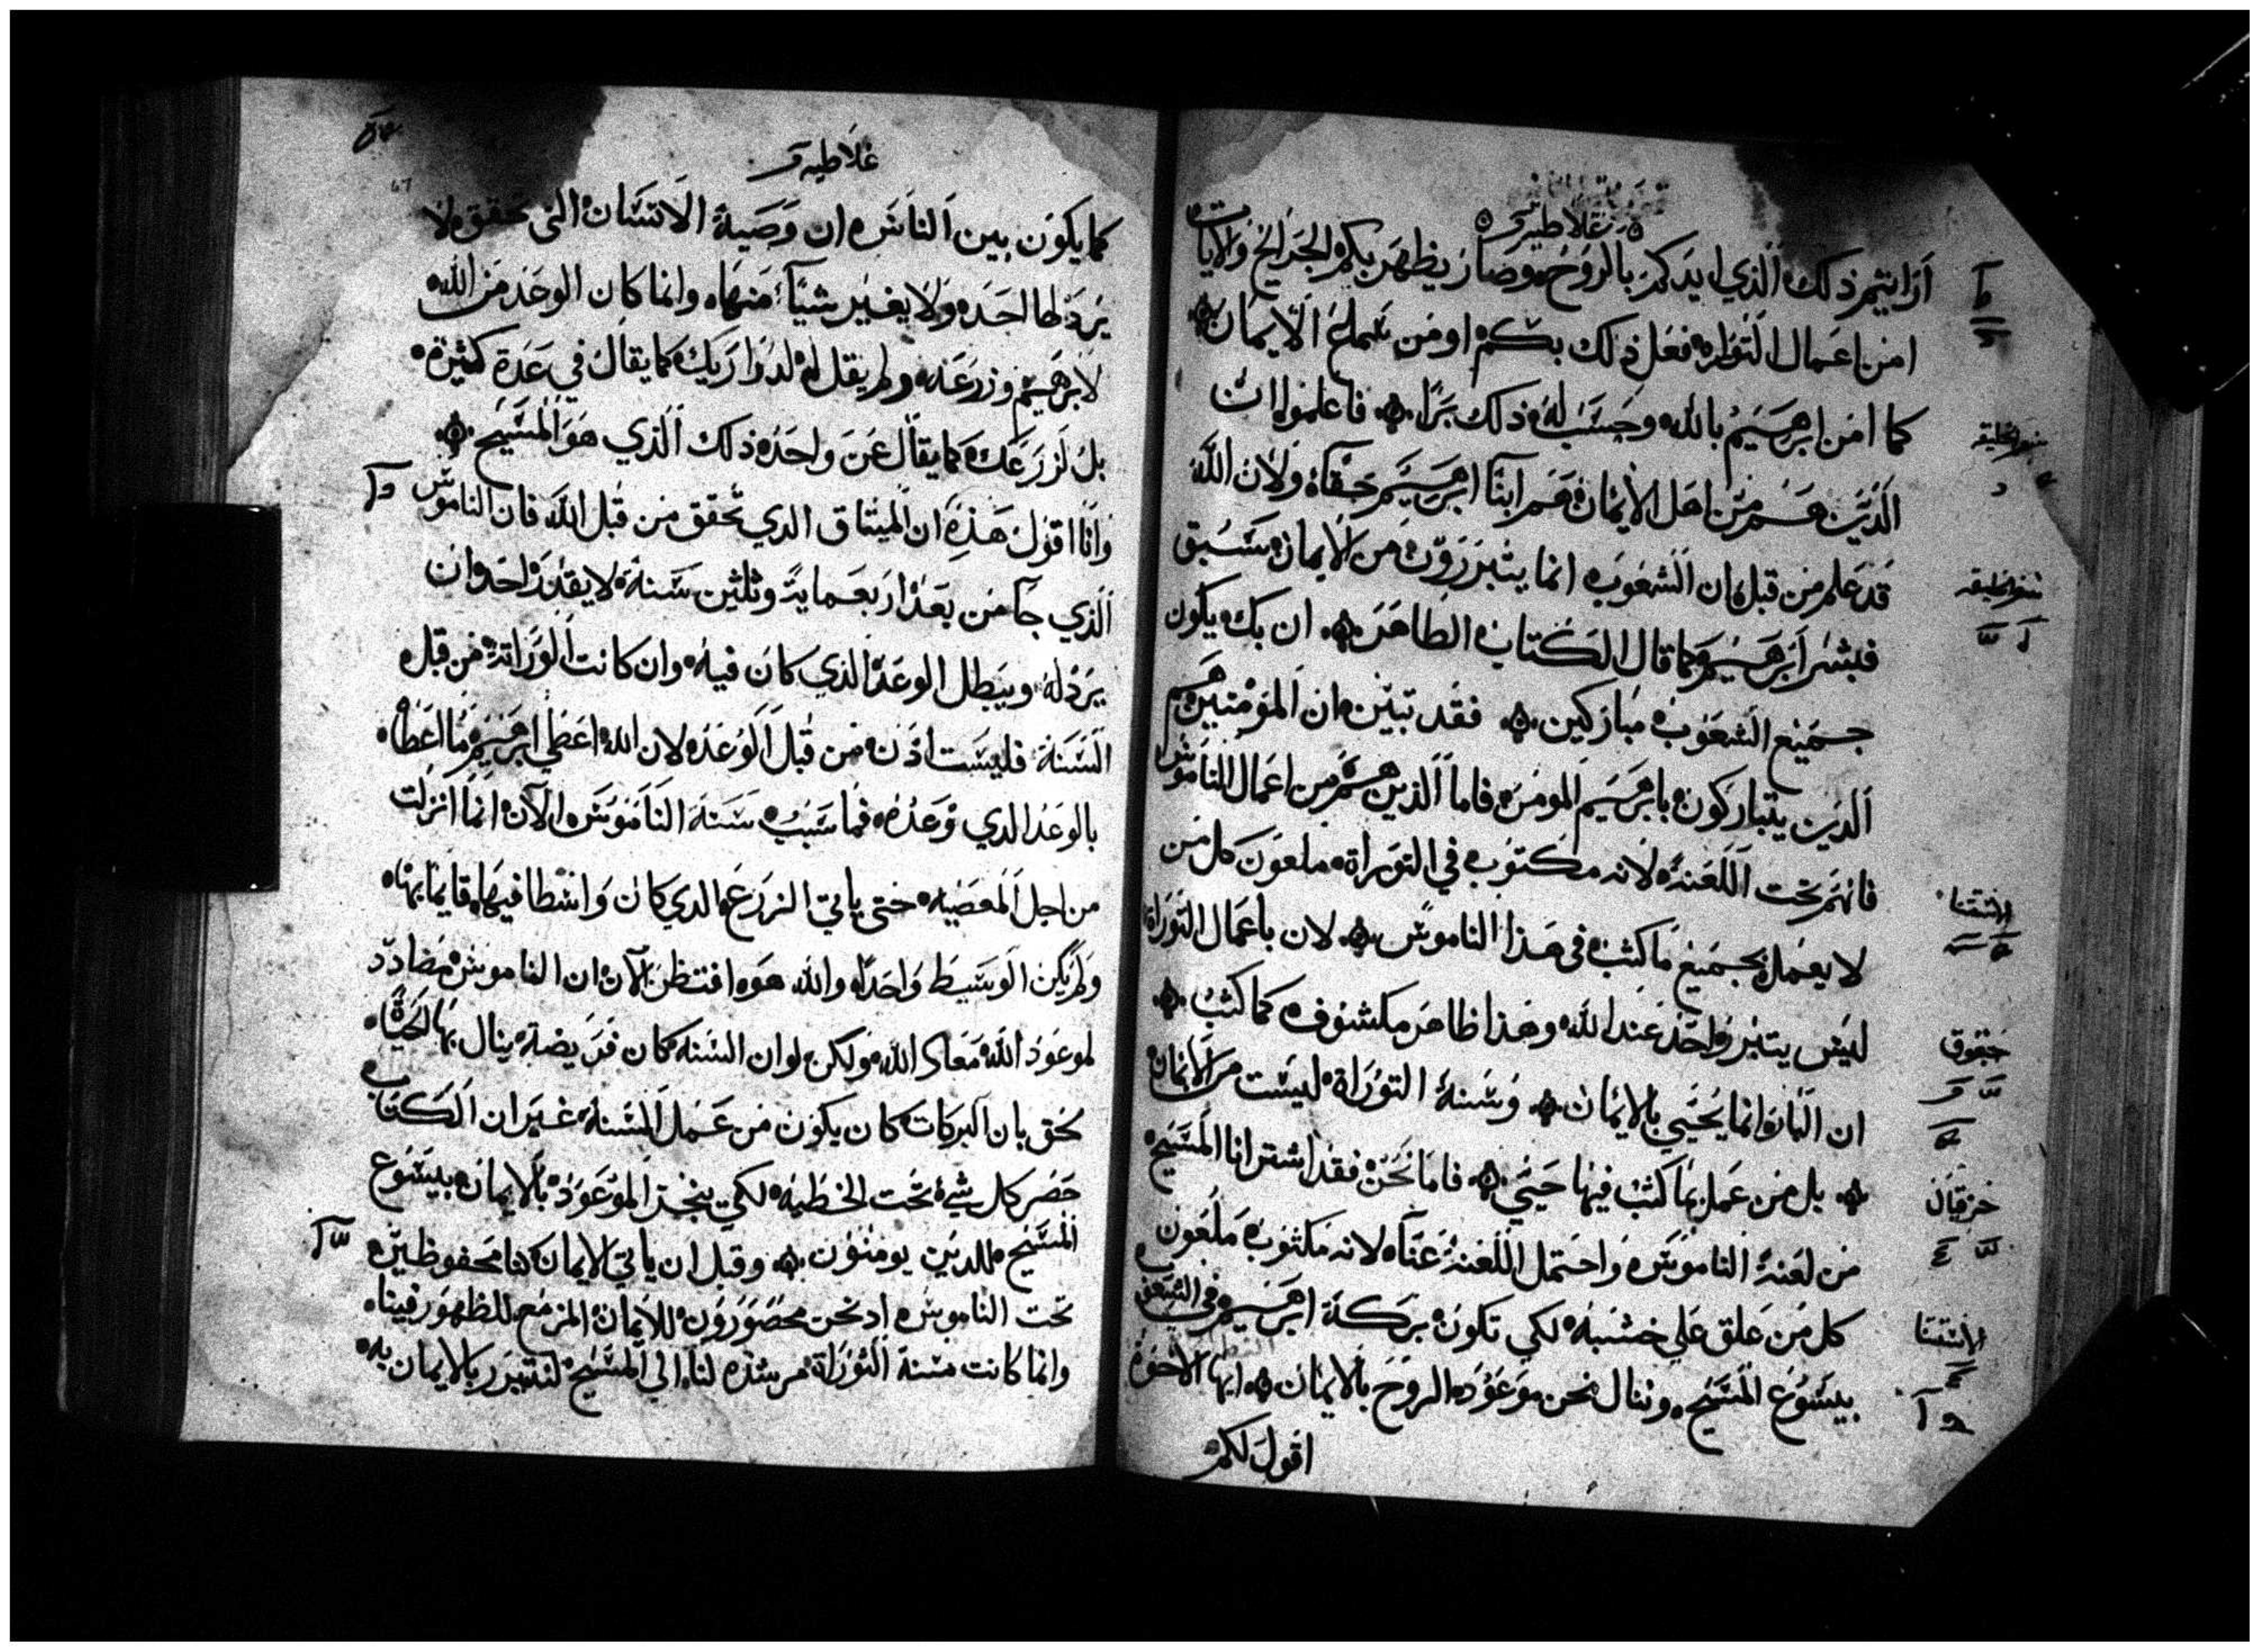 غلاطيه
ارايتم ذلك الذي ايدكم بالروح وصار يظهر بكم الجرايح والايات
امن اعمال التوراه فعل ذلك بكم او من سماع الايمان
كما امن ابرهيم بالله وحسب له ذلك برا فاعلموا ان
الذين هم من اهل الايمان هم ابنا ابرهيم حقا ولان الله
قد علم من قبل ان الشعوب انما يتبررون من الايمان سبق
فبشر ابرهيم كما قال الكتاب الطاهر ان بك يكون
جميع الشعوب مباركين فقد تبين ان المومنين هم
الذين يتباركون بابرهيم المومن فاما الذين هم من اعمال الناموس
فانهم تحت اللعنه لانه مكتوب في التوراة ملعون كل من
لا يعمل بجميع ما كتب في هذا الناموس لان باعمال التوراة
ليس يتبرر واحد عند الله وهذا ظاهر مكشوف كما كتب
ان البار انما يحيي بالايمان وسنة التوراة ليست من الايمان
بل من عمل بما كتب فيها حيي فاما نحن فقد اشترانا المسيح
من لعنة الناموس واحتمل اللعنة عنا لانه مكتوب ملعون
كل من علق علي خشبه لكي تكون بركة ابرهيم في الشعوب
بيسوع المسيح وننال نحن موعود الروح بالايمان ايها الاخوة
اقول لكم
سفر الخليقه
سفر الخليقه
الاستثنا
حبقوق
حزقيال
الاستثنا
غلاطيه
67
كما يكون بين الناس ان وصية الانسان التي تحقق لا
يردلها احد ولا يغير شيا منها وانما كان الوعد من الله
لابرهيم وزرعه ولم يقل له لذراريك كما يقال في عدة كثيرة
بل لزرعك كما يقال عن واحد ذلك الذي هو المسيح
وانا اقول هذه ان الميثاق الدي تحقق من قبل الله فان الناموس
الذي جا من بعد اربعماية وثلثين سنة لا يقدر احد ان
يردله ويبطل الوعد الذي كان فيه وان كانت الوراثة من قبل
السنة فليست اذن من قبل الوعد لان الله اعطي ابرهيم ما اعطاه
بالوعد الدي وعده فما سبب سنة الناموس الان انما انزلت
من اجل المعصيه حتي ياتي الزرع الدي كان واسطا فيها قايما بها
ولم يكن الوسيط واحدا والله هو افتظن الان ان الناموس مضادد
لموعود الله معاد الله ولكن لو ان السنه كان فريضة ينال بها الحياة
لحق بان البركات كان يكون من عمل السنة غير ان الكتاب
حصر كل شي تحت الخطيه لكي ينجز الموعود بالايمان بيسوع
المسيح للدين يومنون وقبل ان ياتي الايمان كنا محفوظين
تحت الناموس اد نحن محصورون للايمان المزمع للظهور فينا
وانما كانت سنة التوراة مرشده لنا الي المسيح لنتبرر بالايمان به